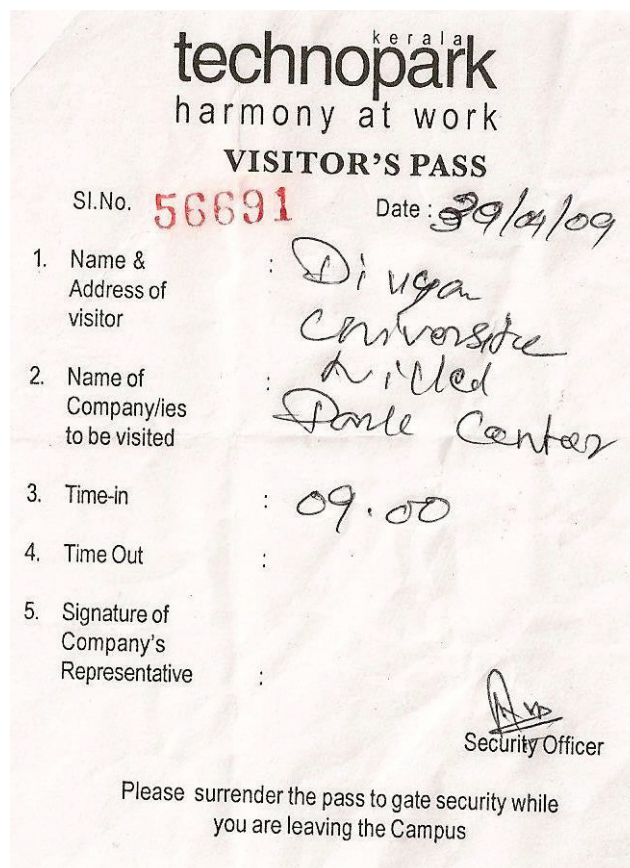 kerala
technopark
harmony at work
VISITOR'S PASS
Sl.No. 56691 Date : 29/04/09
1. Name & Address of visitor : Divya
2. Name of Company/ies to be visited :
Park Center
3. Time-in : 09.00
4. Time Out :
5. Signature of Company's Representative :
Security Officer
Please surrender the pass to gate security while
you are leaving the Campus